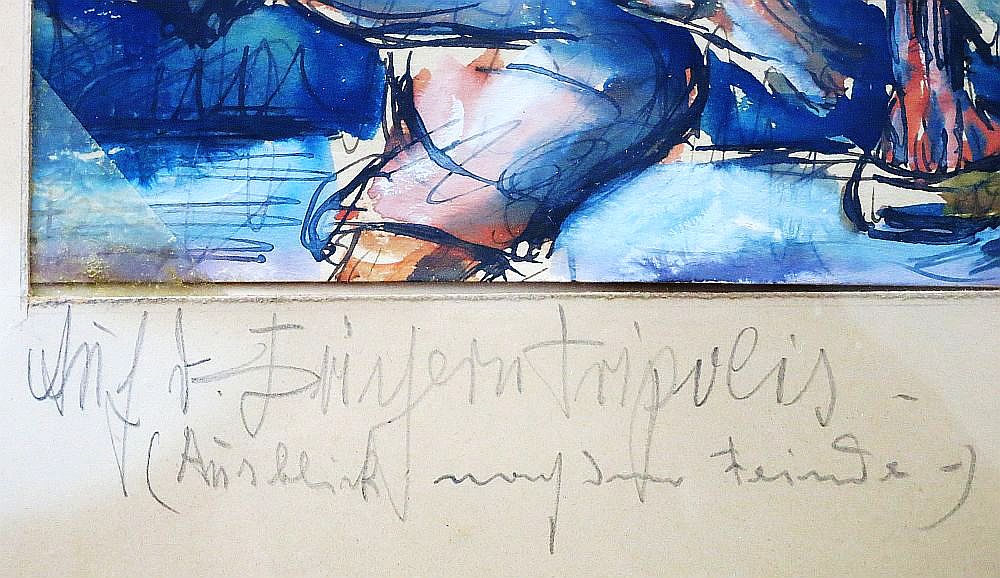 Auf d. Dächern Tripolis -
(Ausblick nach dem Feinde -)